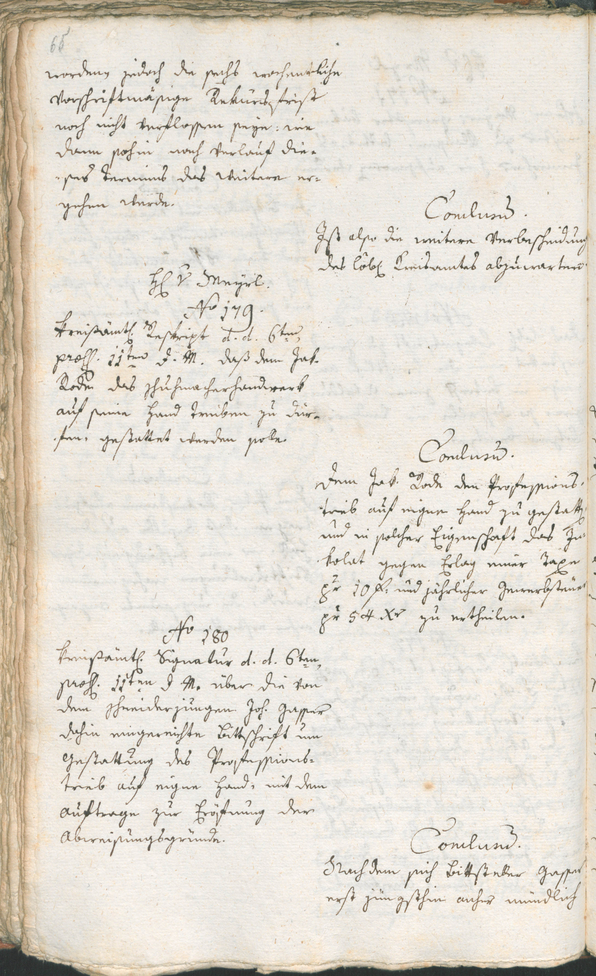 66
worden, jedoch die sechs wochentliche
Vorschriftmäsige Rekursfrist
noch nicht verflossen seye: wie
dann sohin nach Verlauf die-
ses Termins das Weitere er-
gehen werde.
Conclusum.
Ist also die weitere Verbescheidung
des löbl. Kreisamtes abzuwarten.
H. v. Mayrl
No 179.
Kreisämtl. Reskript d. d. 6ten,
präs. 11ten d. M. daß dem Jak.
Rode das Schuhmacherhandwerk
auf seine Hand treiben zu dür-
fen, gestattet werden solle.
Conclusum.
Dem Jak. Rode den Professions-
trieb auf eigne Hand zu gestatten
und in solcher Eigenschaft das In-
kolat gegen Erlag einer Taxe
pr 10 f. und jährlicher Gewerbsteuer
pr 54 Xr zu ertheilen.
No 180
Kreisämtl. Signatur d. d. 6ten,
präs. 11ten d. M. über die von
dem Schneiderjungen Joh. Gasser
dahin eingereichte Bittschrift um
Gestattung des Professions-
trieb auf eigne Hand, mit dem
Auftrage zur Eröfnung der
Abweisungsgründe.
Conclusum.
Nachdem sich Bittsteller Gasser
erst jüngsthin anher mündlich